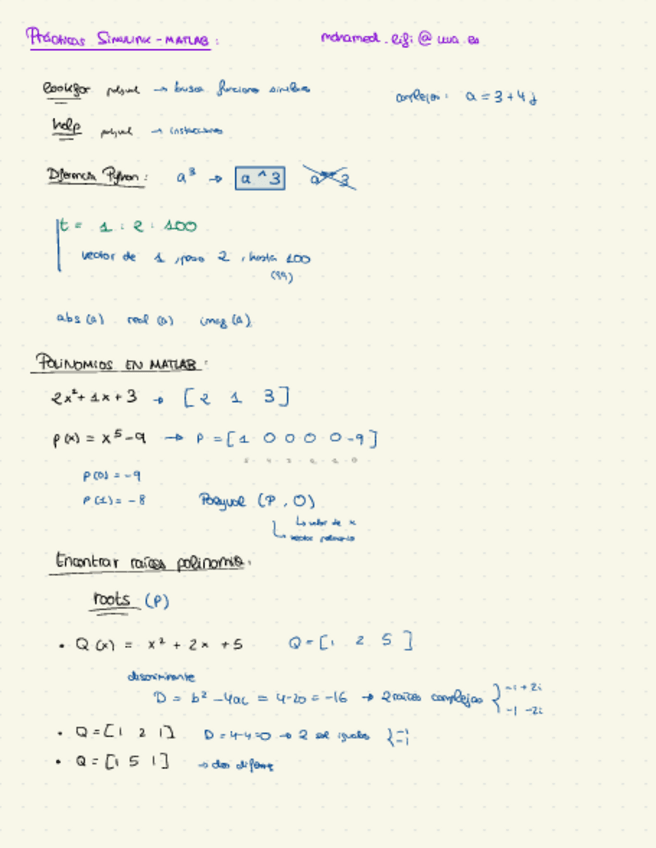 Prácticas Simulink - MATLAB :
mohamed.rifi @ uva.es
lookfor polyval → busca funciones similares
complejos: a = 3 + 4 j
help polyval → instrucciones
Diferencia Python: a³ → a ^ 3 a**3
t = 1 : 2 : 100
vector de 1, paso 2, hasta 100
(99)
abs (a) real (a) imag (a)
POLINOMIOS EN MATLAB:
2x² + 1x + 3 → [ 2 1 3 ]
p(x) = x⁵ - 9 → P = [ 1 0 0 0 0 -9 ]
5 4 3 2 1 0
p(0) = -9
p(1) = -8 Polyval (P, 0)
↳ valor de x
↳ vector polinomio
Encontrar raíces polinomio.
roots (P)
• Q (x) = x² + 2x + 5 Q = [ 1 2 5 ]
discriminante
D = b² - 4ac = 4-20 = -16 → 2 raíces complejas { -1 + 2i
-1 - 2i
• Q = [ 1 2 1 ] D = 4-4 = 0 → 2 iguales { -1 -1
• Q = [ 1 5 1 ] → dos